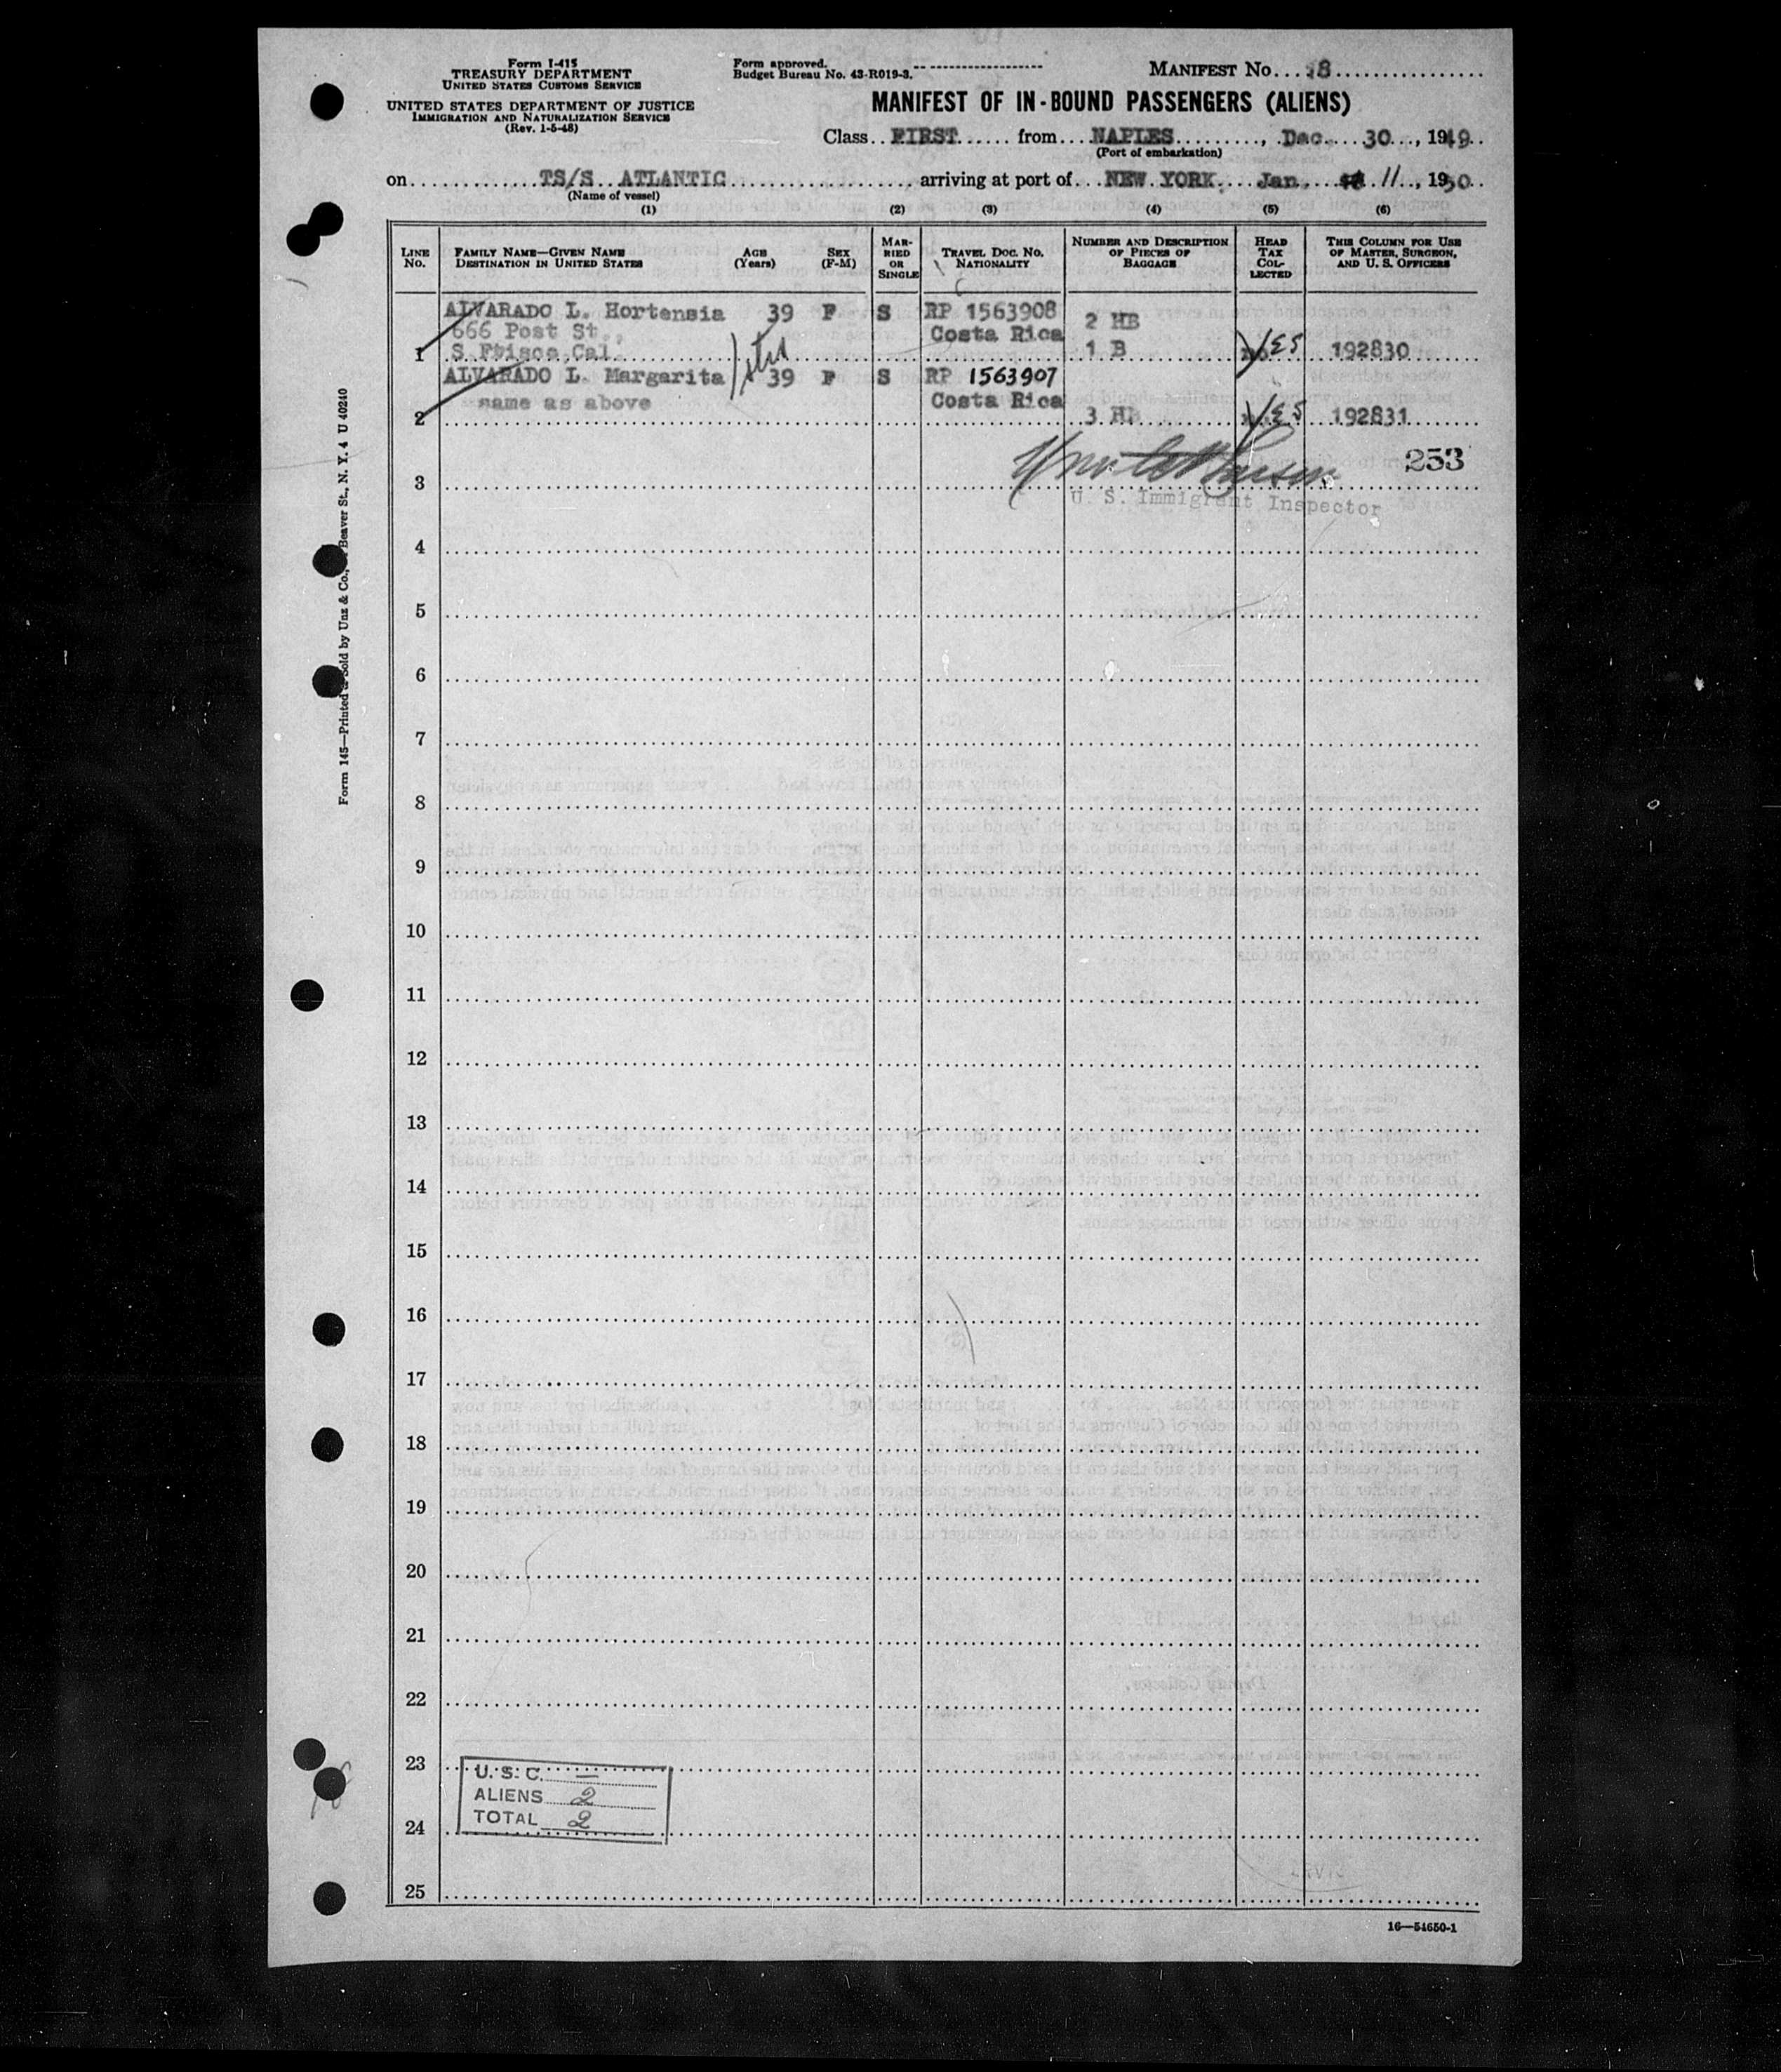 Form I-415
TREASURY DEPARTMENT
UNITED STATES CUSTOMS SERVICE
UNITED STATES DEPARTMENT OF JUSTICE
IMMIGRATION AND NATURALIZATION SERVICE
(Rev. 1-5-48)
Form approved.
Budget Bureau No. 43-R019-3.
MANIFEST No. 8
MANIFEST OF IN-BOUND PASSENGERS (ALIENS)
Class FIRST from NAPLES, Dec. 30, 1949
(Port of embarkation)
on TS/S ATLANTIC arriving at port of NEW YORK, Jan. 11, 1950
(Name of vessel)
(1) (2) (3) (4) (5) (6)
LINE No. FAMILY NAME—GIVEN NAME DESTINATION IN UNITED STATES AGE (Years) SEX (F-M) MARRIED OR SINGLE TRAVEL DOC. NO. NATIONALITY NUMBER AND DESCRIPTION OF PIECES OF BAGGAGE HEAD TAX COLLECTED THIS COLUMN FOR USE OF MASTER, SURGEON, AND U. S. OFFICERS
ALVARADO L. Hortensia 39 F S RP 1563908 2 HB
666 Post St., Costa Rica
1 S Frisco, Cal. 1 B YES 192830
ALVARADO L. Margarita 39 F S RP 1563907
same as above Costa Rica
2 3 HB YES 192831
253
3
U. S. Immigrant Inspector
4
5
6
7
8
9
10
11
12
13
14
15
16
17
18
19
20
21
22
23
U. S. C. —
ALIENS 2
TOTAL 2
24
25
16—54650-1
Form 145—Printed & Sold by Unz & Co., Beaver St., N. Y. 4 U 40240